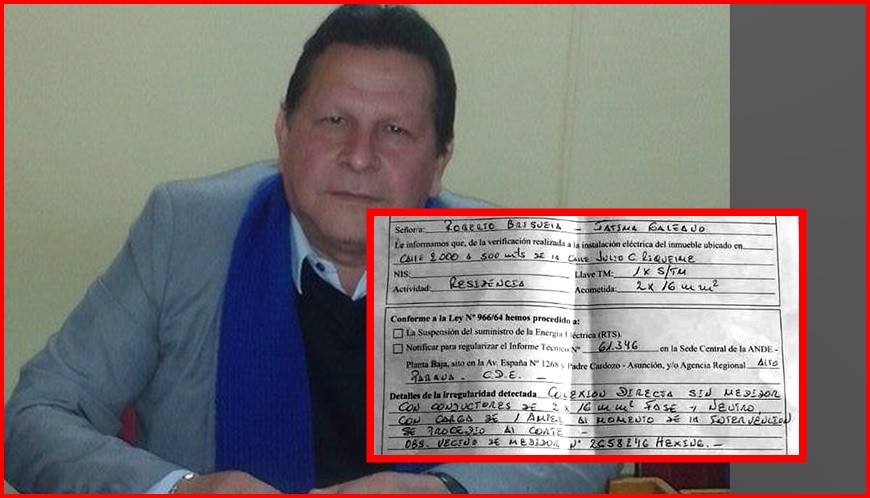 Señor/a: ROBERTO BRIGUELA - FATIMA GALEANO
Le informamos que, de la verificación realizada a la instalación eléctrica del inmueble ubicado en
CALLE 2000 A 500 MTS DE LA CALLE JULIO C. RIQUELME
NIS: Llave TM: 1 X S/TM
Actividad: RESIDENCIA Acometida: 2 X 16 mm²
Conforme a la Ley Nº 966/64 hemos procedido a:
La Suspensión del suministro de la Energía Eléctrica (RTS).
Notificar para regularizar el Informe Técnico Nº 61.346 en la Sede Central de la ANDE -
Planta Baja, sito en la Av. España Nº 1268 y Padre Cardozo - Asunción, y/o Agencia Regional ALTO
PARANA - C.D.E. -
Detalles de la irregularidad detectada CONEXION DIRECTA SIN MEDIDOR
CON CONDUCTORES DE 2 X 16 mm² FASE Y NEUTRO
CON CARGA DE 1 AMPER AL MOMENTO DE LA INTERVENCION
SE PROCEDIO AL CORTE -
OBS. VECINO DE MEDIDOR Nº 2658246 HEXING. -